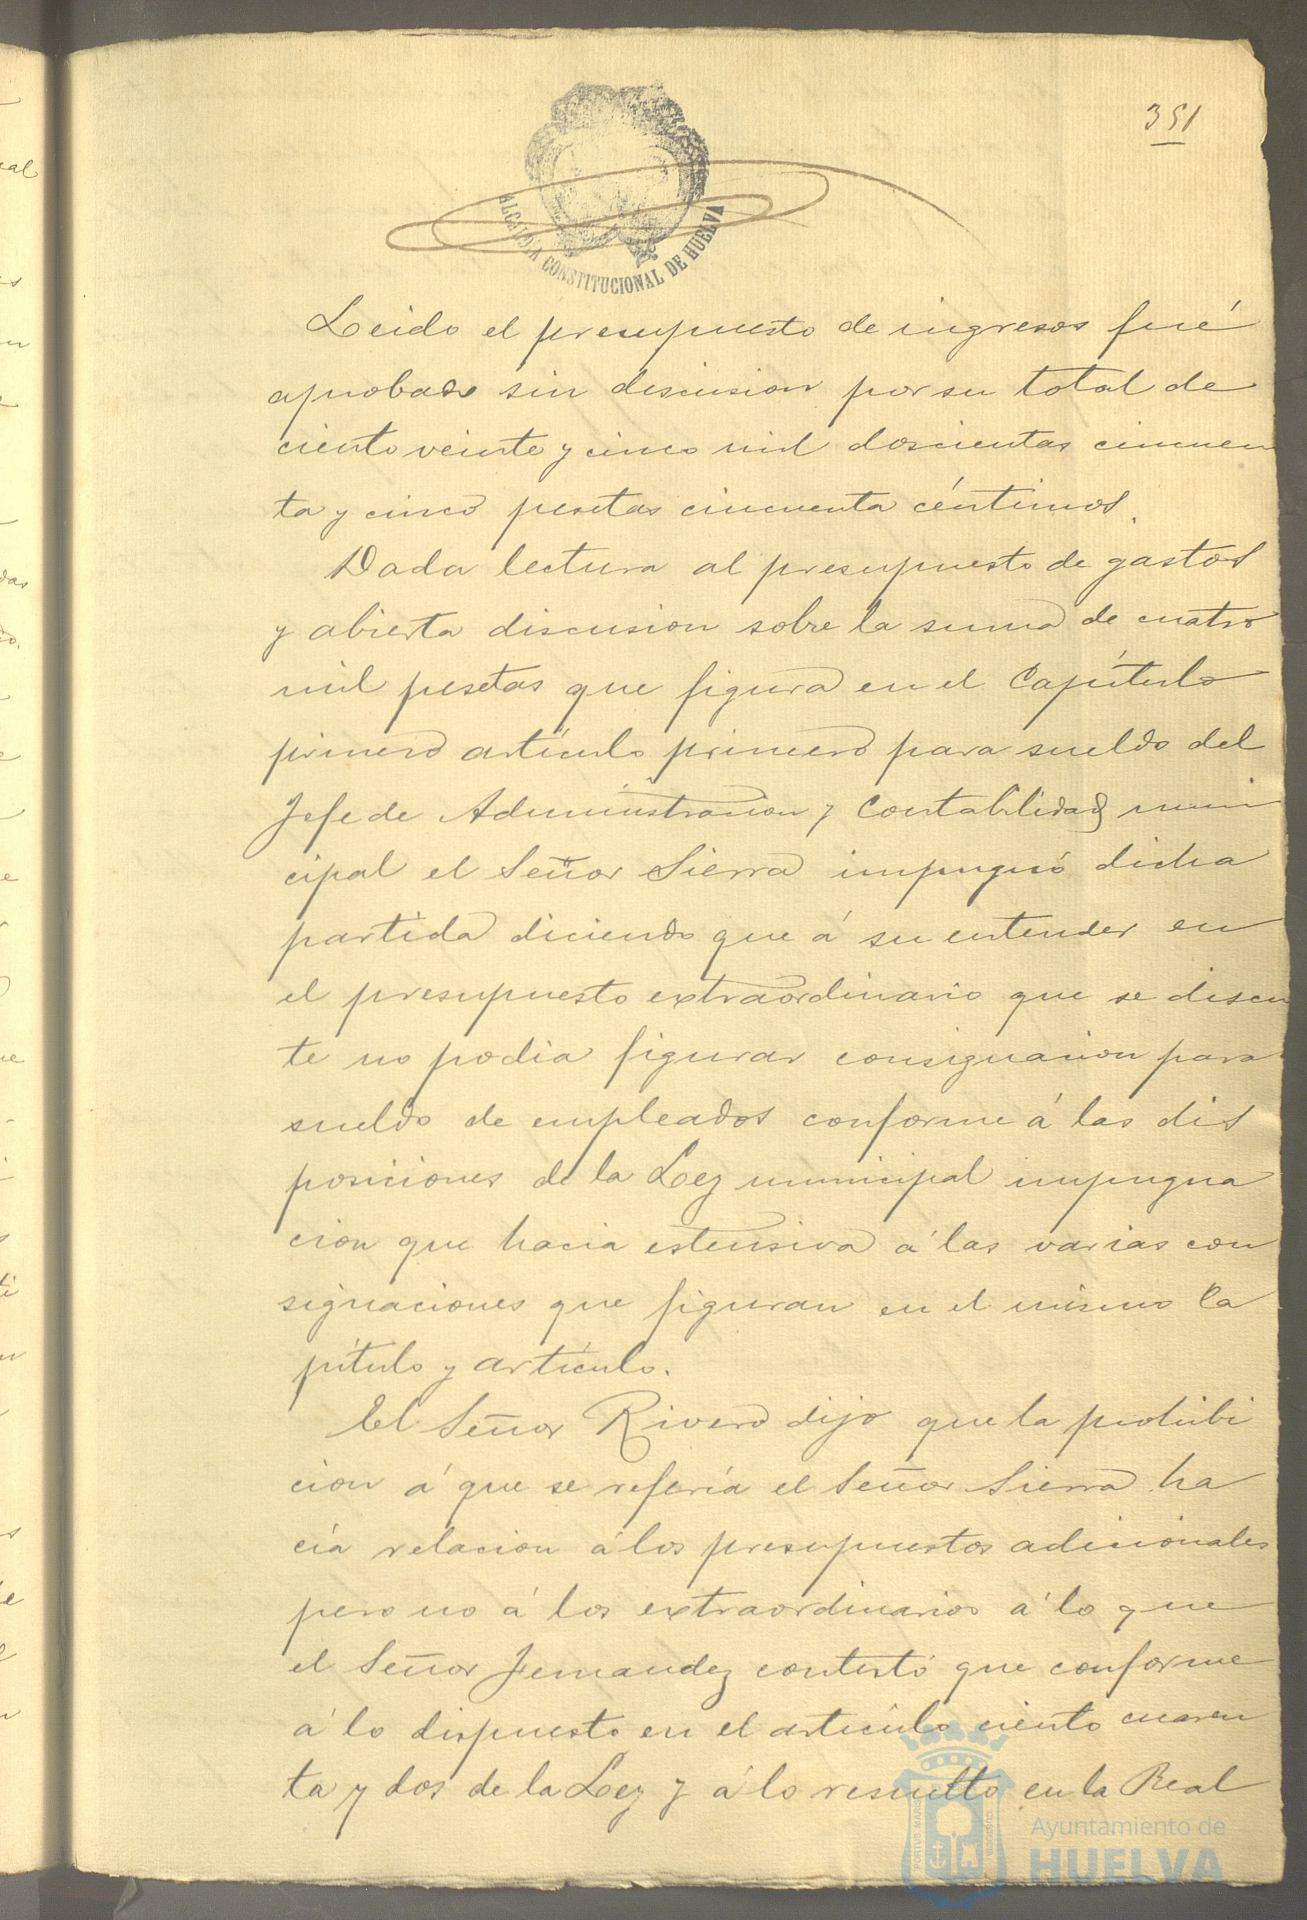 351
ALCALDIA CONSTITUCIONAL DE HUELVA
Leido el presupuesto de ingresos fué
aprobado sin discusion por su total de
ciento veinte y cinco mil doscientas cincuen
ta y cinco pesetas cincuenta céntimos.
Dada lectura al presupuesto de gastos
y abierta discusion sobre la suma de cuatro
mil pesetas que figura en el Capítulo
primero artículo primero para sueldo del
Jefe de Administracion y Contabilidad muni
cipal el Señor Sierra impugnó dicha
partida diciendo que á su entender en
el presupuesto extraordinario que se discu
te no podia figurar consignacion para
sueldo de empleados conforme á las dis
posiciones de la Ley municipal impugna
cion que hacia estensiva á las varias con
signaciones que figuran en el mismo Ca
pítulo y artículo.
El Señor Rivero dijo que la prohibi
cion á que se refería el Señor Sierra ha
cía relacion á los presupuestos adicionales
pero no á los extraordinarios á lo que
el Señor Fernandez contestó que conforme
á lo dispuesto en el artículo ciento cuaren
ta y dos de la Ley y á lo resuelto en la Real
Ayuntamiento de
HUELVA